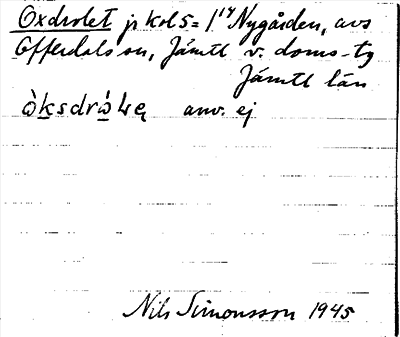 Oxdrolet jr kol 5 = 1¹⁴ Nygården, avs
Offerdals sn, Jämtl v. doms-tg
Jämtl län
anv. ej
Nils Simonsson 1945